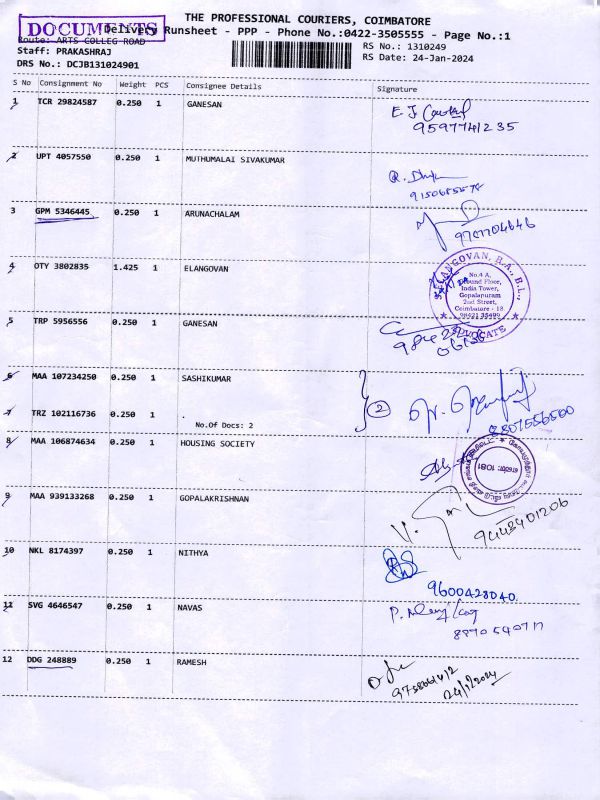 THE PROFESSIONAL COURIERS, COIMBATORE
DOCUMENTS
Delivery Runsheet - PPP - Phone No.:0422-3505555 - Page No.:1
Route: ARTS COLLEG ROAD
RS No.: 1310249
Staff: PRAKASHRAJ
RS Date: 24-Jan-2024
DRS No.: DCJB131024901
S No Consignment No Weight PCS Consignee Details Signature
1 TCR 29824587 0.250 1 GANESAN
9597741235
2 UPT 4057550 0.250 1 MUTHUMALAI SIVAKUMAR
3 GPM 5346445 0.250 1 ARUNACHALAM
4 OTY 3802835 1.425 1 ELANGOVAN
ELANGOVAN, B.A., B.L.,
No.4 A,
Ground Floor,
India Tower,
Gopalapuram
2nd Street,
Coimbatore - 18
ADVOCATE
5 TRP 5956556 0.250 1 GANESAN
6 MAA 107234250 0.250 1 SASHIKUMAR
2
7 TRZ 102116736 0.250 1 .
No.Of Docs: 2
8807556560
8 MAA 106874634 0.250 1 HOUSING SOCIETY
9 MAA 939133268 0.250 1 GOPALAKRISHNAN
9443401206
10 NKL 8174397 0.250 1 NITHYA
9600428040.
11 SVG 4646547 0.250 1 NAVAS
12 DDG 248889 0.250 1 RAMESH
24/1/2024